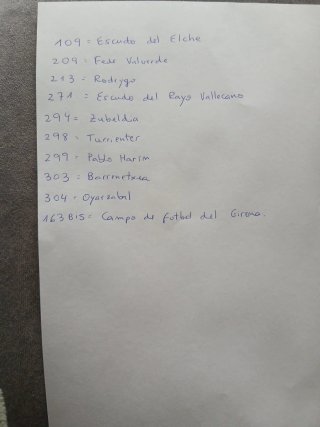 109 = Escudo del Elche
209 = Fede Valverde
213 = Rodrygo
271 = Escudo del Rayo Vallecano
294 = Zubeldia
298 = Turrientes
299 = Pablo Marím
303 = Barrenetxea
304 = Oyarzabal
163 BIS = Campo de futbol del Girona.